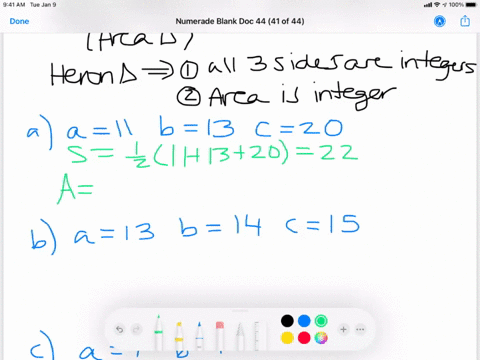 9:41 AM Tue Jan 9
100%
Done
Numerade Blank Doc 44 (41 of 44)
(Area Δ)
Heron Δ ⇒ ① all 3 sides are integers
② Area is integer
a) a = 11 b = 13 c = 20
S = 1/2 (11+13+20) = 22
A =
b) a = 13 b = 14 c = 15
c) a =